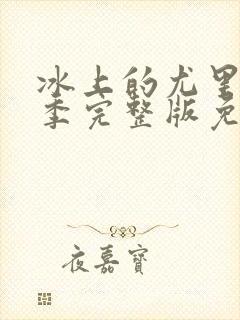 冰上的尤里
季完整版免
夜嘉寶